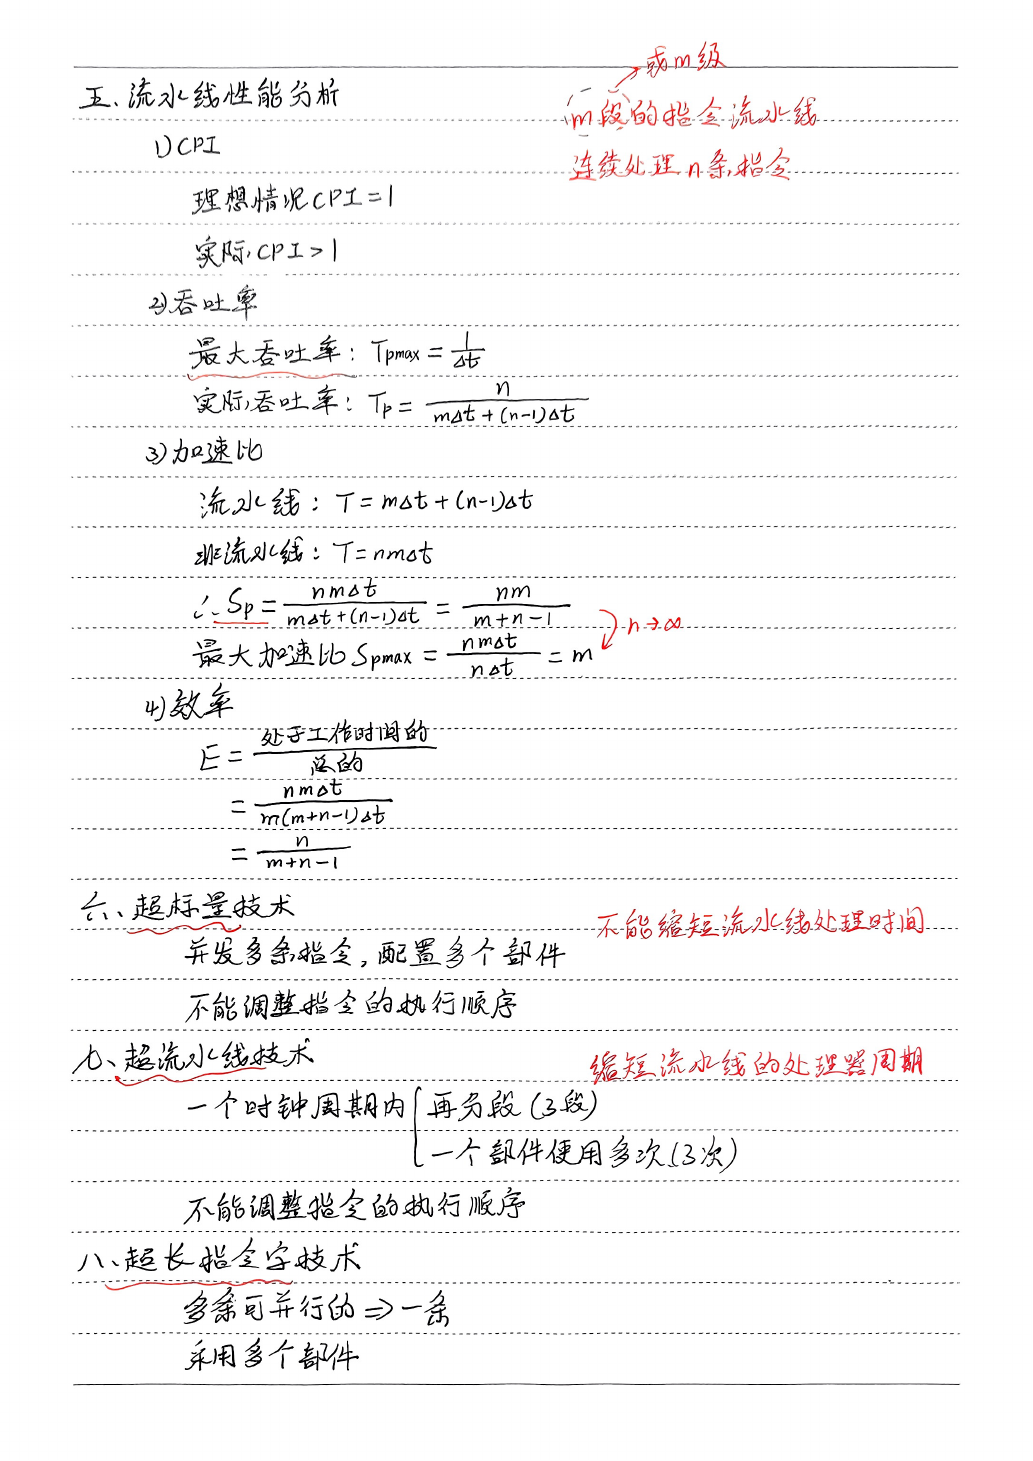 或m级
五、流水线性能分析
m段的指令流水线
1) CPI
连续处理n条指令
理想情况CPI=1
实际CPI>1
2)吞吐率
最大吞吐率: Tpmax = 1/Δt
实际吞吐率: Tp = n/(mΔt+(n-1)Δt)
3)加速比
流水线: T=mΔt+(n-1)Δt
非流水线: T=nmΔt
∴Sp = nmΔt/(mΔt+(n-1)Δt) = nm/(m+n-1)
n→∞
最大加速比Spmax = nmΔt/nΔt = m
4)效率
E = 处于工作时间的/总的
= nmΔt/(m(m+n-1)Δt)
= n/(m+n-1)
六、超标量技术
不能缩短流水线处理时间
并发多条指令,配置多个部件
不能调整指令的执行顺序
七、超流水线技术
缩短流水线的处理器周期
一个时钟周期内{再分段(3段)
一个部件使用多次(3次)
不能调整指令的执行顺序
八、超长指令字技术
多条可并行的⇒一条
采用多个部件